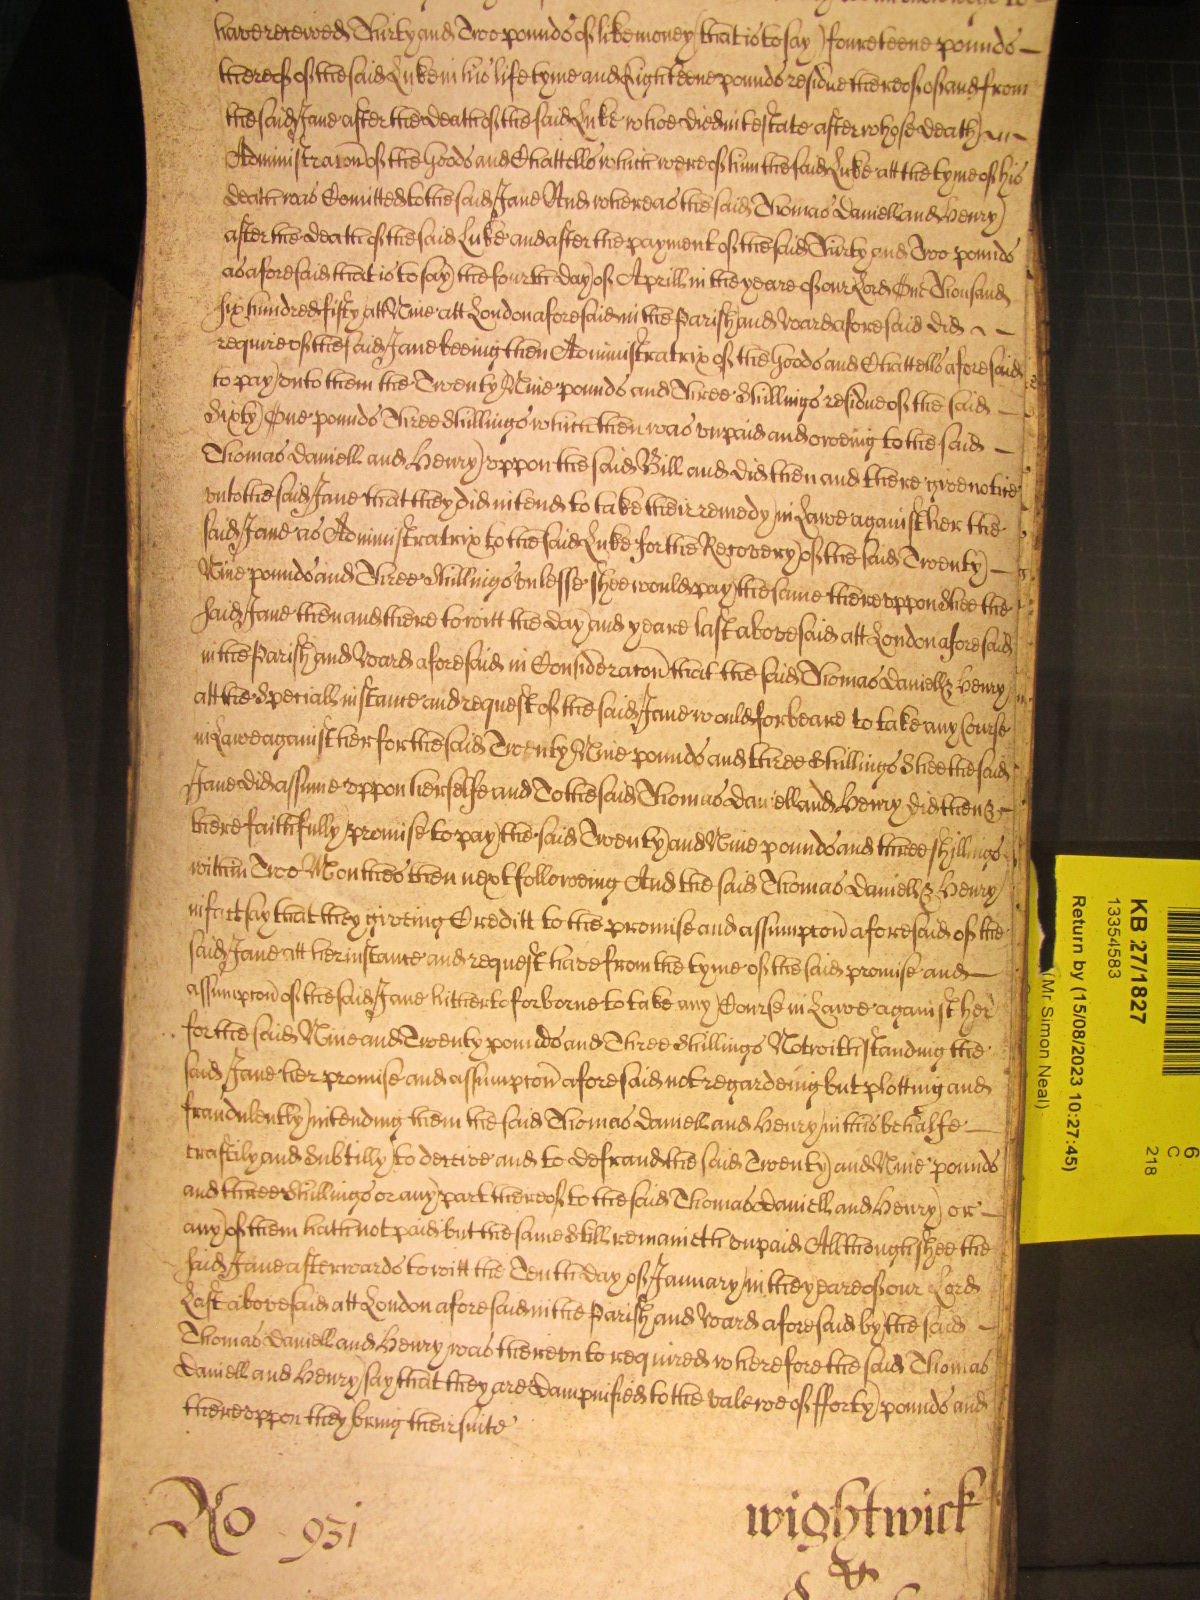 have received Thirty and Two pounds of like money (that is to say) foureteene pounds —
thereof of the said Luke in his life tyme and Eighteene pounds residue thereof of and from
the said Jane after the death of the said Luke whoe died intestate after whose death
Administracon of the goods and Chattells which were of him the said Luke att the tyme of his
death was Comitted to the said Jane And whereas the said Thomas Daniell and Henry
after the death of the said Luke and after the payment of the said Thirty and Two pounds
as aforesaid that is to say the fourth day of Aprill in the yeare of our Lord One Thousand
six hundred fifty att Nine att London aforesaid in the Parish and Ward aforesaid did
require of the said Jane beeing then Administratrix of the goods and Chattells aforesaid
to pay unto them the Twenty Nine pounds and Three Shillings residue of the said —
Sixty One pounds Three Shillings which then was unpaid and oweing to the said —
Thomas Daniell and Henry uppon the said Bill and did then and there give notice
unto the said Jane that they did intend to take their remedy in Lawe against her the
said Jane as Administratrix to the said Luke for the Recovery of the said Twenty —
Nine pounds and Three Shillings unlesse shee would pay the same thereuppon shee the
said Jane then and there to witt the day and yeare last abovesaid att London aforesaid
in the Parish and Ward aforesaid in Consideracon that the said Thomas Daniell & Henry
att the Speciall instance and request of the said Jane would forbeare to take any Course
in Lawe against her for the said Twenty Nine pounds and three Shillings Shee the said
Jane did assume uppon herselfe and To the said Thomas Daniell and Henry did then &
there faithfully promise to pay the said Twenty and Nine pounds and three shillings
within Two Monthes then next followeing And the said Thomas Daniell & Henry
in fact say that they giveing Creditt to the promise and assumpcon aforesaid of the
said Jane att her instance and request have from the tyme of the said promise and —
assumpcon of the said Jane hitherto forborne to take any Course in Lawe against her
for the said Nine and Twenty pounds and Three Shillings Notwithstanding the
said Jane her promise and assumpcon aforesaid not regardeing but plotting and
fraudulently intending them the said Thomas Daniell and Henry in this behalfe —
craftily and Subtilly to deceive and to defraud the said Twenty and Nine pounds
and three Shillings or any part thereof to the said Thomas Daniell and Henry or —
any of them hath not paid but the same still remaineth unpaid Allthough shee the
said Jane afterwards to witt the Tenth day of January in the yeare of our Lord
Last abovesaid att London aforesaid in the Parish and Ward aforesaid by the said —
Thomas Daniell and Henry was thereunto required wherefore the said Thomas
Daniell and Henry say that they are Dampnified to the valewe of fforty pounds and
thereuppon they bring their suite
Ro 931
wightwick
KB 27/1827
13354583
Return by (15/08/2023 10:27:45)
(Mr Simon Neal)
6
C
218